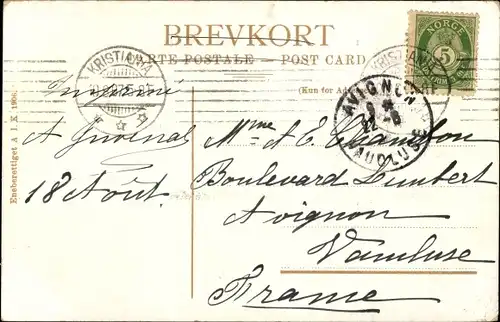 BREVKORT
CARTE POSTALE - POST CARD
(Kun for Adr
NORGE
5
KRISTIANIA
AVIGNON
VAUCLUSE
Eneberettiget A I. K. 1906.
18 Août.
Mme A. E. Chambon
Boulevard Limbert
Avignon
Vaucluse
France